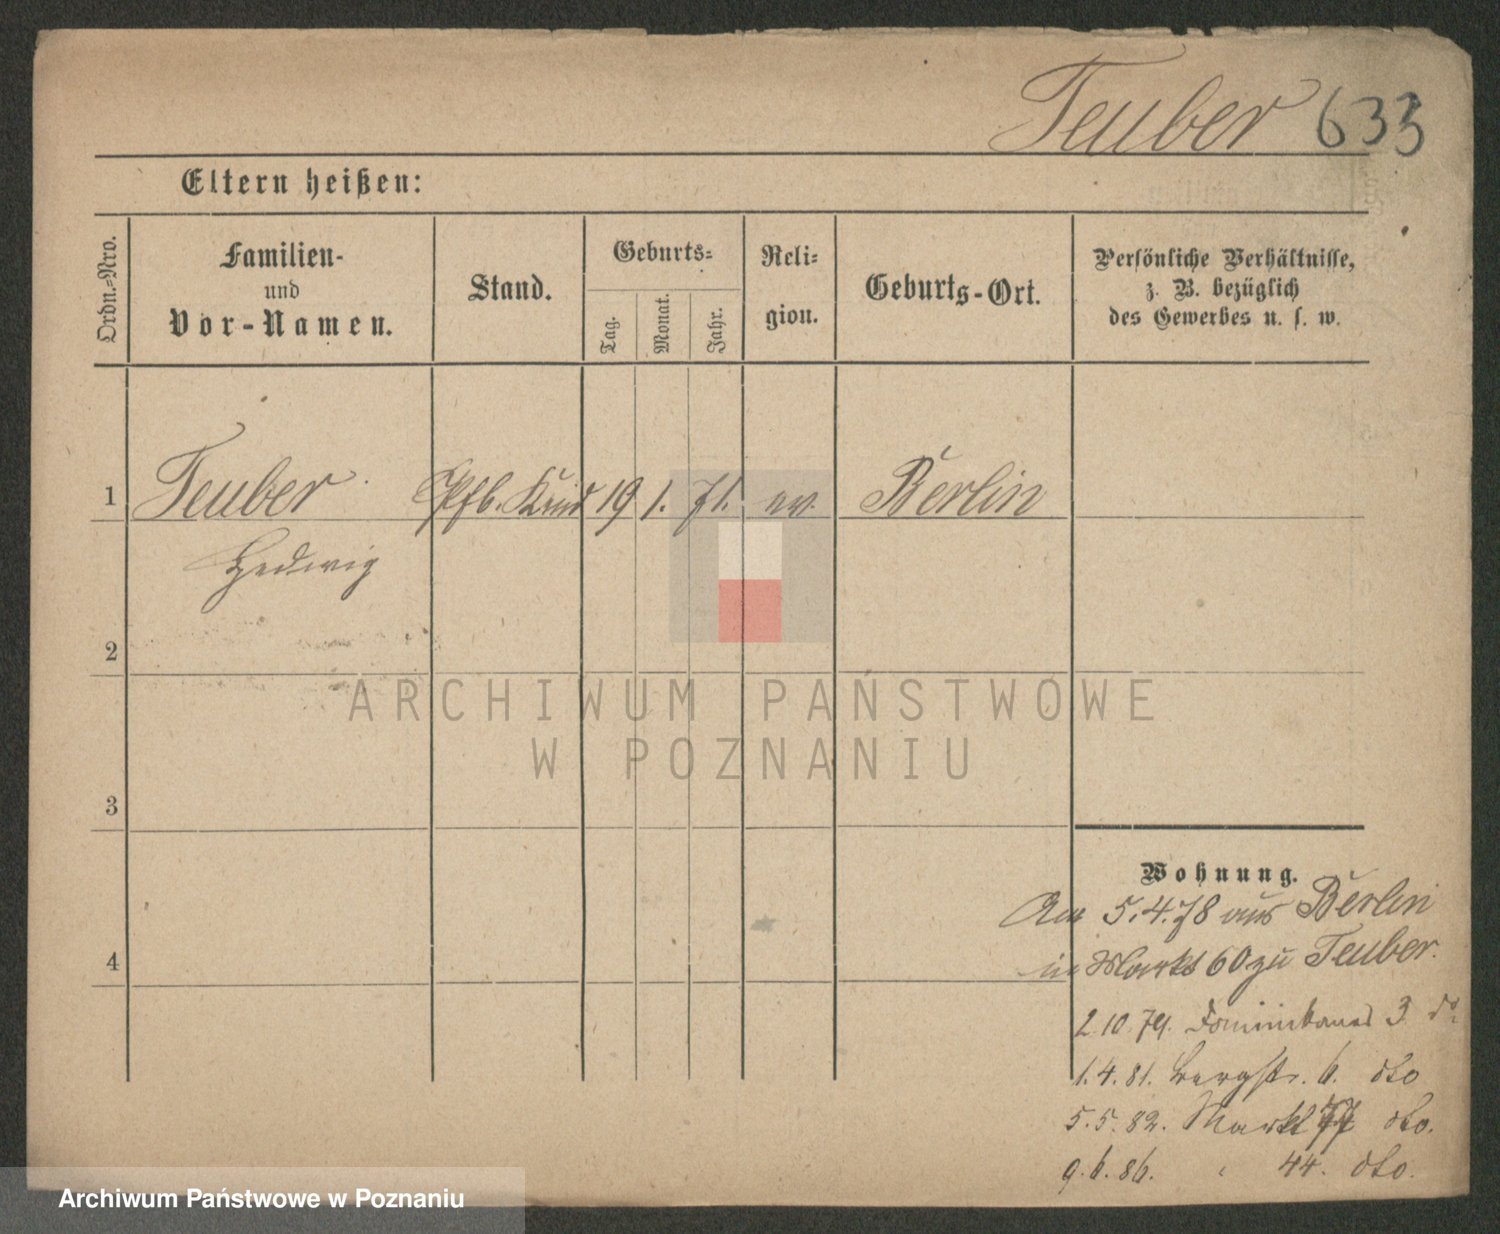 Teuber 633
Eltern heißen:
Ordn.-Nro.
Familien-
und
Vor-Namen.
Stand.
Geburts-
Tag.
Monat.
Jahr.
Reli-
gion.
Geburts-Ort.
Persönliche Verhältnisse,
z. B. bezüglich
des Gewerbes u. s. w.
1 Teuber Pfb. Kind 19 1. 71. ev. Berlin
Hedwig
2
3
4
Wohnung.
Am 5.4.78 aus Berlin
in Markt 60 zu Teuber.
2.10.79. Dominikaner 3. do
1.4.81. Bergstr. 6. dto
5.5.82. Markt 77 dto.
9.6.86. " 44. dto.
ARCHIWUM PAŃSTWOWE
W POZNANIU
Archiwum Państwowe w Poznaniu